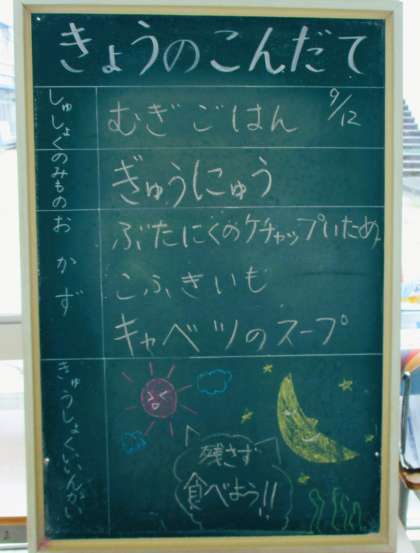 きょうのこんだて
9/12
しゅしょく
むぎごはん
のみもの
ぎゅうにゅう
おかず
ぶたにくのケチャップいため
こふきいも
キャベツのスープ
きゅうしょくいいんかい
残さず
食べよう!!